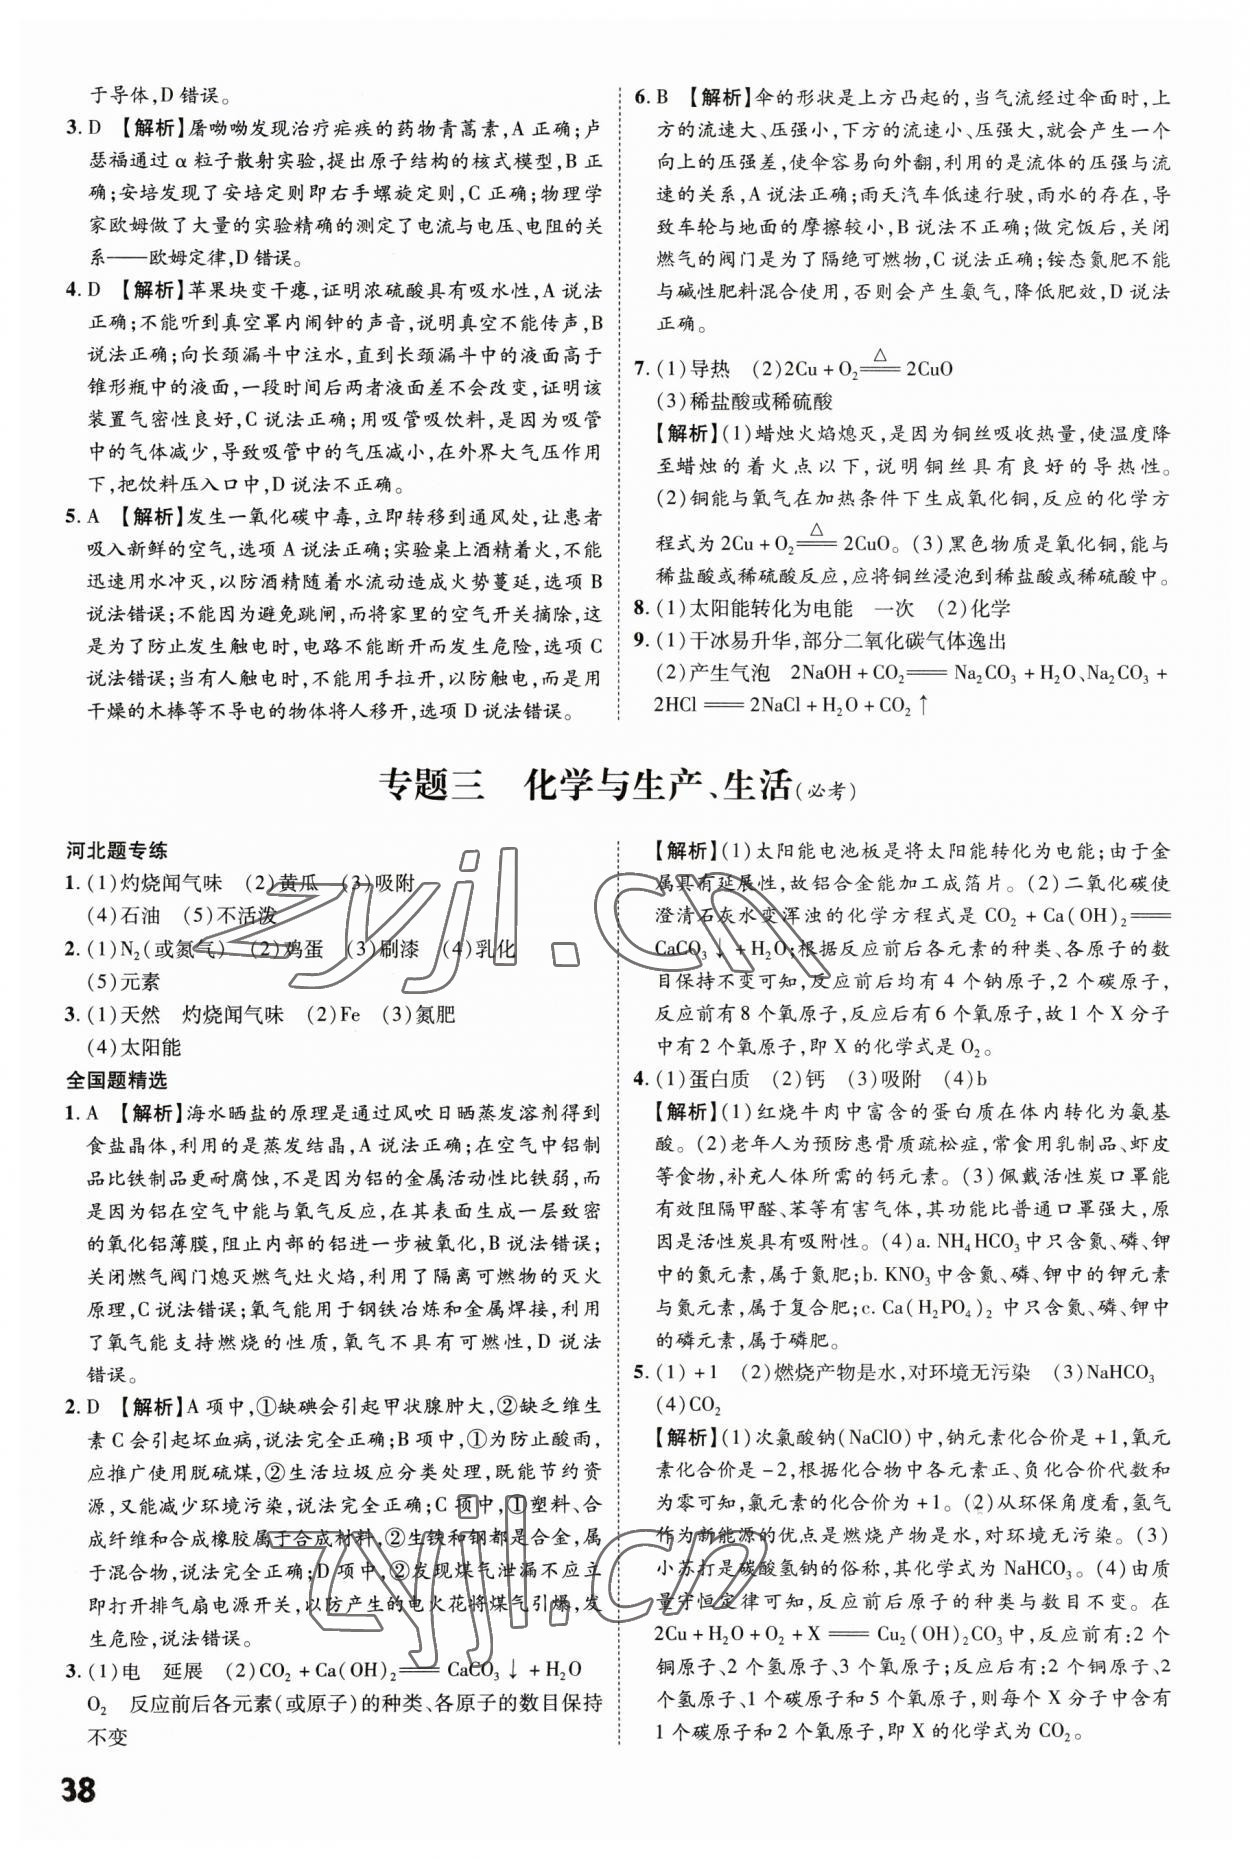 于导体,D错误。
3. D 【解析】屠呦呦发现治疗疟疾的药物青蒿素,A正确;卢
瑟福通过α粒子散射实验,提出原子结构的核式模型,B正
确;安培发现了安培定则即右手螺旋定则,C正确;物理学
家欧姆做了大量的实验精确的测定了电流与电压、电阻的关
系——欧姆定律,D错误。
4. D 【解析】苹果块变干瘪,证明浓硫酸具有吸水性,A说法
正确;不能听到真空罩内闹钟的声音,说明真空不能传声,B
说法正确;向长颈漏斗中注水,直到长颈漏斗中的液面高于
锥形瓶中的液面,一段时间后两者液面差不会改变,证明该
装置气密性良好,C说法正确;用吸管吸饮料,是因为吸管
中的气体减少,导致吸管中的气压减小,在外界大气压作用
下,把饮料压入口中,D说法不正确。
5. A 【解析】发生一氧化碳中毒,立即转移到通风处,让患者
吸入新鲜的空气,选项A说法正确;实验桌上酒精着火,不能
迅速用水冲灭,以防酒精随着水流动造成火势蔓延,选项B
说法错误;不能因为避免跳闸,而将家里的空气开关摘除,这
是为了防止发生触电时,电路不能断开而发生危险,选项C
说法错误;当有人触电时,不能用手拉开,以防触电,而是用
干燥的木棒等不导电的物体将人移开,选项D说法错误。
6. B 【解析】伞的形状是上方凸起的,当气流经过伞面时,上
方的流速大、压强小,下方的流速小、压强大,就会产生一个
向上的压强差,使伞容易向外翻,利用的是流体的压强与流
速的关系,A说法正确;雨天汽车低速行驶,雨水的存在,导
致车轮与地面的摩擦较小,B说法不正确;做完饭后,关闭
燃气的阀门是为了隔绝可燃物,C说法正确;铵态氮肥不能
与碱性肥料混合使用,否则会产生氨气,降低肥效,D说法
正确。
7. (1)导热 (2)2Cu+O₂=△=2CuO
(3)稀盐酸或稀硫酸
【解析】(1)蜡烛火焰熄灭,是因为铜丝吸收热量,使温度降
至蜡烛的着火点以下,说明铜丝具有良好的导热性。
(2)铜能与氧气在加热条件下生成氧化铜,反应的化学方
程式为2Cu+O₂=△=2CuO。(3)黑色物质是氧化铜,能与
稀盐酸或稀硫酸反应,应将铜丝浸泡到稀盐酸或稀硫酸中。
8. (1)太阳能转化为电能 一次 (2)化学
9. (1)干冰易升华,部分二氧化碳气体逸出
(2)产生气泡 2NaOH+CO₂══Na₂CO₃+H₂O、Na₂CO₃+
2HCl══2NaCl+H₂O+CO₂↑
专题三 化学与生产、生活(必考)
河北题专练
1. (1)灼烧闻气味 (2)黄瓜 (3)吸附
(4)石油 (5)不活泼
2. (1)N₂(或氮气) (2)鸡蛋 (3)刷漆 (4)乳化
(5)元素
3. (1)天然 灼烧闻气味 (2)Fe (3)氮肥
(4)太阳能
全国题精选
1. A 【解析】海水晒盐的原理是通过风吹日晒蒸发溶剂得到
食盐晶体,利用的是蒸发结晶,A说法正确;在空气中铝制
品比铁制品更耐腐蚀,不是因为铝的金属活动性比铁弱,而
是因为铝在空气中能与氧气反应,在其表面生成一层致密
的氧化铝薄膜,阻止内部的铝进一步被氧化,B说法错误;
关闭燃气阀门熄灭燃气灶火焰,利用了隔离可燃物的灭火
原理,C说法错误;氧气能用于钢铁冶炼和金属焊接,利用
了氧气能支持燃烧的性质,氧气不具有可燃性,D说法
错误。
2. D 【解析】A项中,①缺碘会引起甲状腺肿大,②缺乏维生
素C会引起坏血病,说法完全正确;B项中,①为防止酸雨,
应推广使用脱硫煤,②生活垃圾应分类处理,既能节约资
源,又能减少环境污染,说法完全正确;C项中,①塑料、合
成纤维和合成橡胶属于合成材料,②生铁和钢都是合金,属
于混合物,说法完全正确;D项中,②发现煤气泄漏不应立
即打开排气扇电源开关,以防产生的电火花将煤气引爆,发
生危险,说法错误。
3. (1)电 延展 (2)CO₂+Ca(OH)₂══CaCO₃↓+H₂O
O₂ 反应前后各元素(或原子)的种类、各原子的数目保持
不变
【解析】(1)太阳能电池板是将太阳能转化为电能;由于金
属具有延展性,故铝合金能加工成箔片。(2)二氧化碳使
澄清石灰水变浑浊的化学方程式是CO₂+Ca(OH)₂══
CaCO₃↓+H₂O;根据反应前后各元素的种类、各原子的数
目保持不变可知,反应前后均有4个钠原子,2个碳原子,
反应前有8个氧原子,反应后有6个氧原子,故1个X分子
中有2个氧原子,即X的化学式是O₂。
4. (1)蛋白质 (2)钙 (3)吸附 (4)b
【解析】(1)红烧牛肉中富含的蛋白质在体内转化为氨基
酸。(2)老年人为预防患骨质疏松症,常食用乳制品、虾皮
等食物,补充人体所需的钙元素。(3)佩戴活性炭口罩能
有效阻隔甲醛、苯等有害气体,其功能比普通口罩强大,原
因是活性炭具有吸附性。(4)a. NH₄HCO₃中只含氮、磷、钾
中的氮元素,属于氮肥;b. KNO₃中含氮、磷、钾中的钾元素
与氮元素,属于复合肥;c. Ca(H₂PO₄)₂中只含氮、磷、钾中
的磷元素,属于磷肥。
5. (1)+1 (2)燃烧产物是水,对环境无污染 (3)NaHCO₃
(4)CO₂
【解析】(1)次氯酸钠(NaClO)中,钠元素化合价是+1,氧元
素化合价是-2,根据化合物中各元素正、负化合价代数和
为零可知,氯元素的化合价为+1。(2)从环保角度看,氢气
作为新能源的优点是燃烧产物是水,对环境无污染。(3)
小苏打是碳酸氢钠的俗称,其化学式为NaHCO₃。(4)由质
量守恒定律可知,反应前后原子的种类与数目不变。在
2Cu+H₂O+O₂+X══Cu₂(OH)₂CO₃中,反应前有:2个
铜原子、2个氢原子、3个氧原子;反应后有:2个铜原子、2
个氢原子、1个碳原子和5个氧原子,则每个X分子中含有
1个碳原子和2个氧原子,即X的化学式为CO₂。
38
zyjl.cn
zyjl.cn